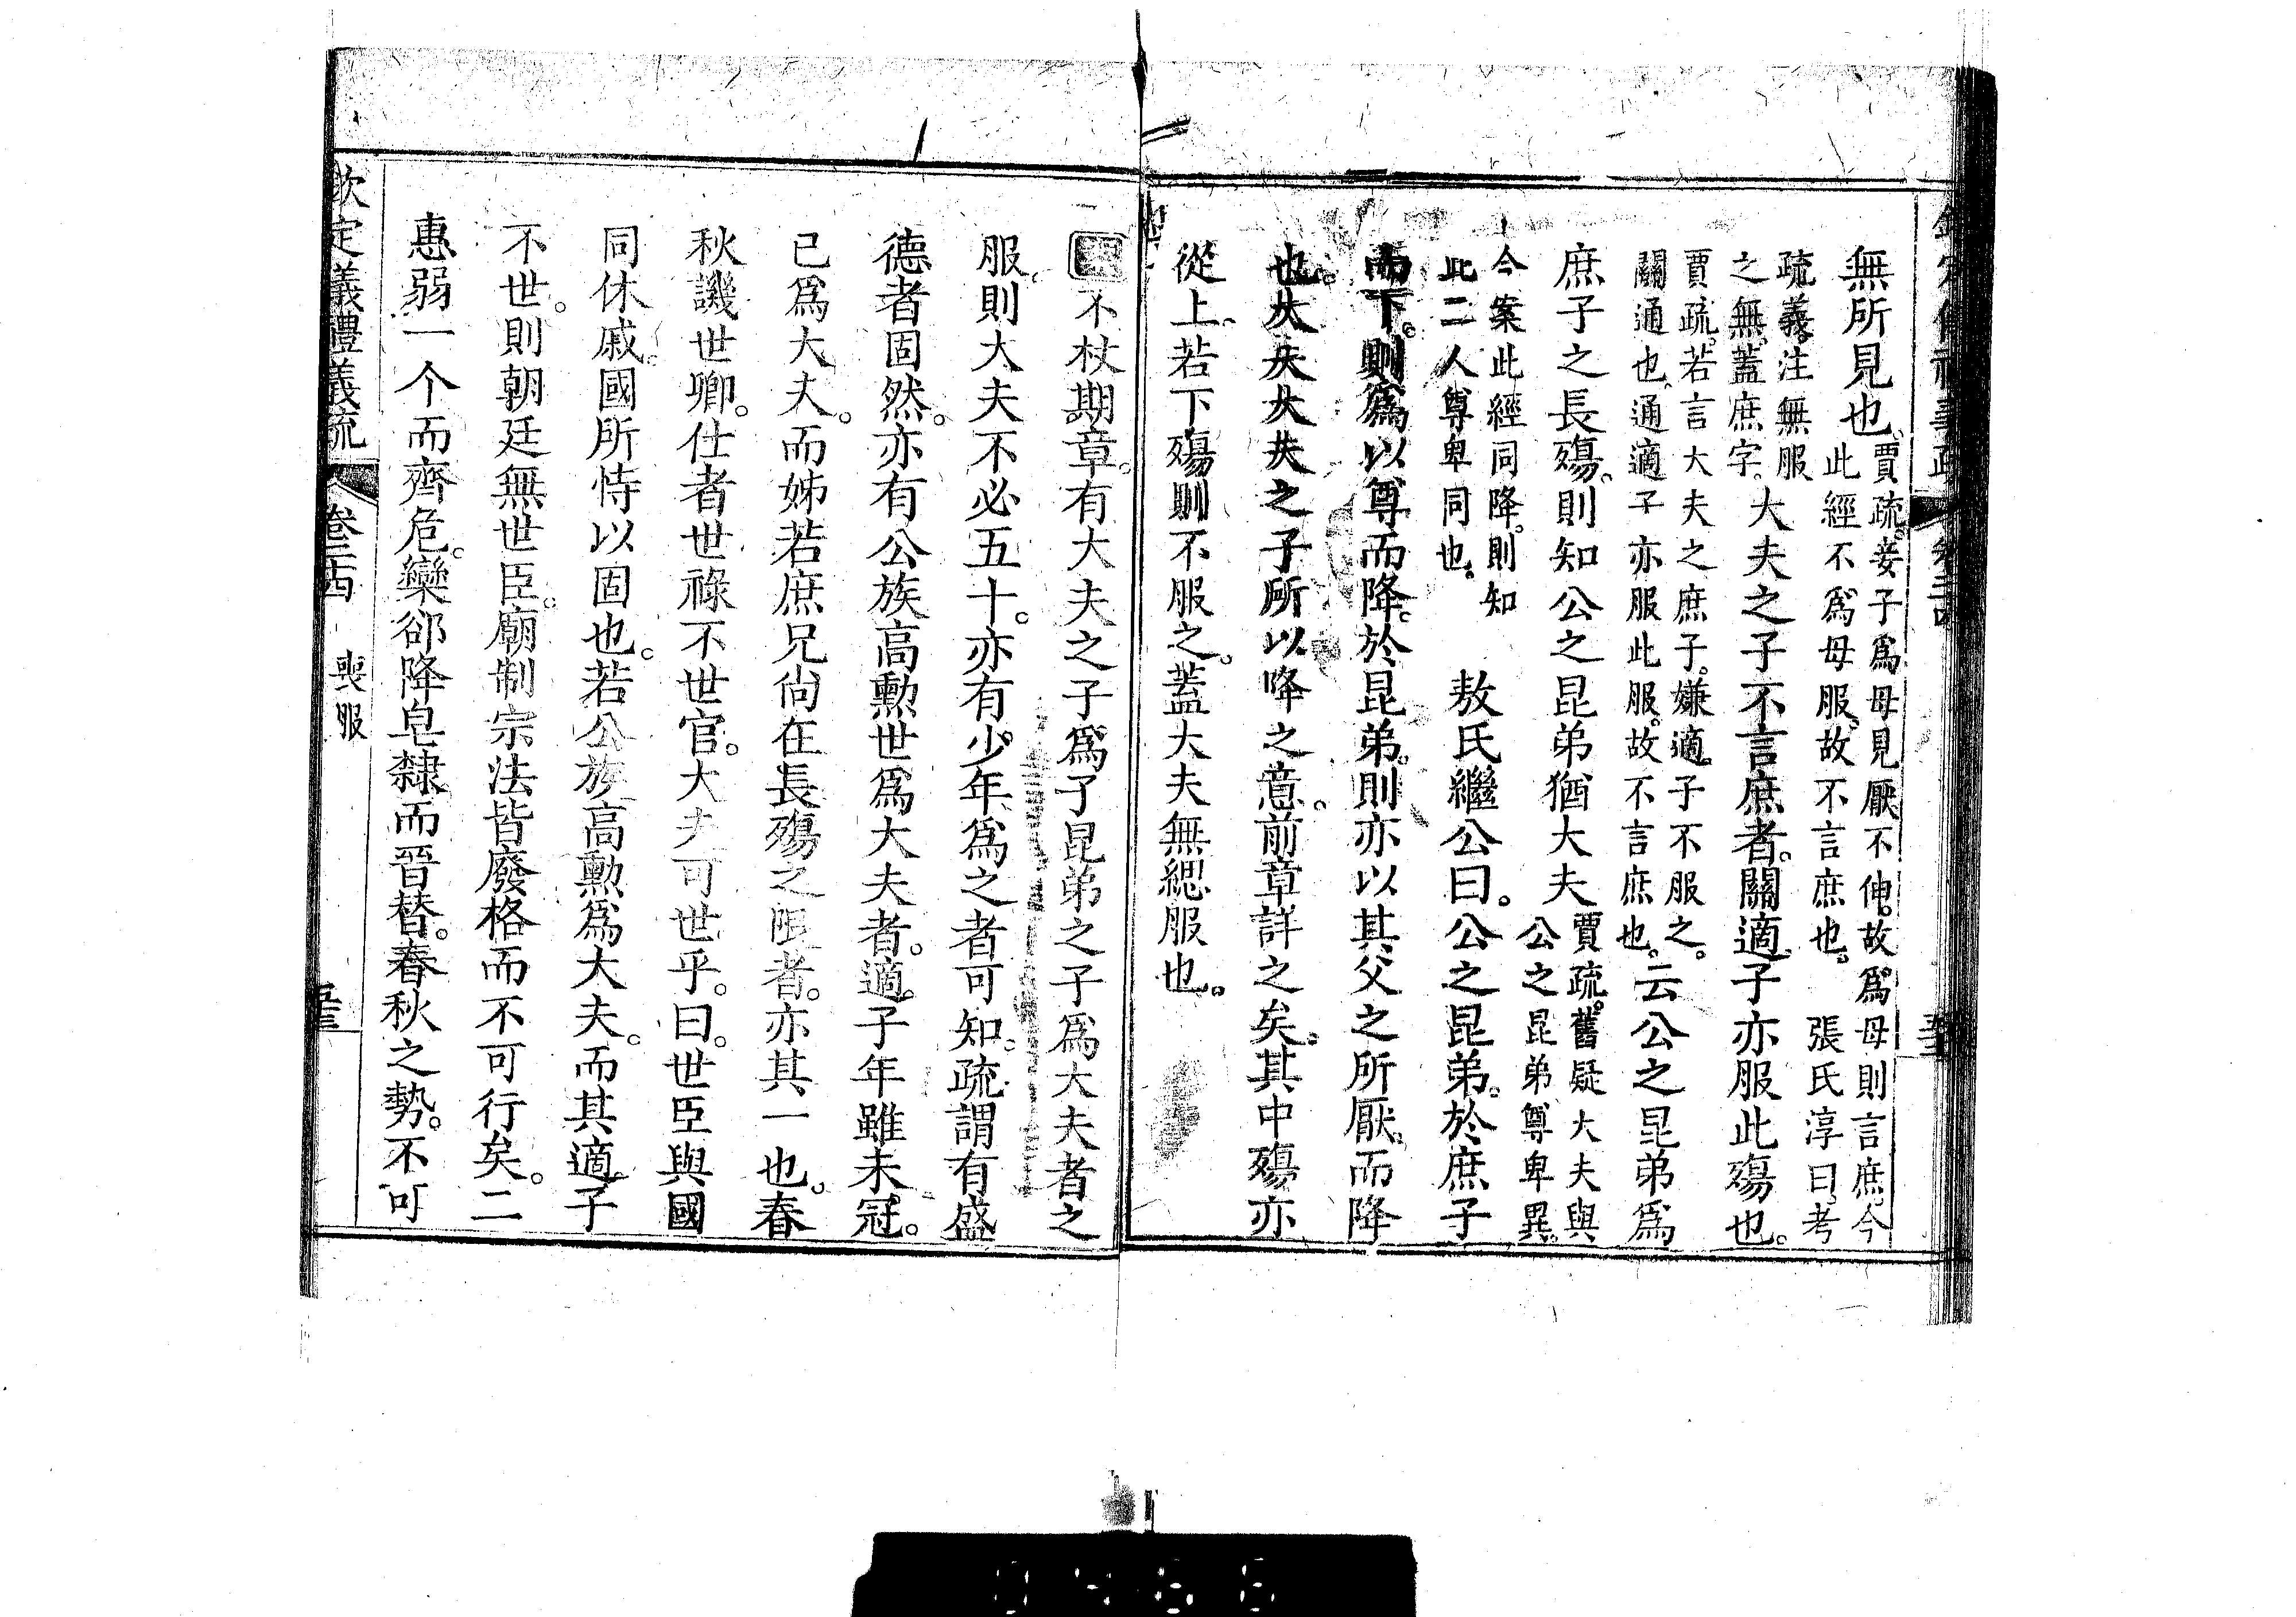 無所見也。賈疏。妾子爲母見厭不伸。故爲母則言庶。今此經不爲母服。故不言庶也。張氏淳曰。考
疏義。注無服之無。蓋庶字。大夫之子不言庶者。關適子亦服此殤也。
賈疏。若言大夫之庶子。嫌適子不服之。關通也。通適子亦服此服。故不言庶也。云公之昆弟爲
庶子之長殤。則知公之昆弟猶大夫賈疏。舊疑大夫與公之昆弟尊卑異。
今案此經同降。則知此二人尊卑同也。敖氏繼公曰。公之昆弟。於庶子
而下。則爲以尊而降。於昆弟。則亦以其父之所厭。而降
也。大夫大夫之子所以降之意。前章詳之矣。其中殤亦
從上。若下殤則不服之。蓋大夫無緦服也。
不杖期章。有大夫之子爲子昆弟之子爲大夫者之
服。則大夫不必五十。亦有少年爲之者可知。疏謂有盛
德者固然。亦有公族高勳世爲大夫者。適子年雖未冠。
已爲大夫。而姊若庶兄尙在長殤之限者。亦其一也。春
秋譏世卿。仕者世祿不世官。大夫可世乎。曰。世臣與國
同休戚。國所恃以固也。若公族高勳爲大夫。而其適子
不世。則朝廷無世臣。廟制宗法皆廢格而不可行矣。二
惠弱一个而齊危。欒郤降皂隸而晉替。春秋之勢。不可
欽定義禮義疏 卷二十四 喪服